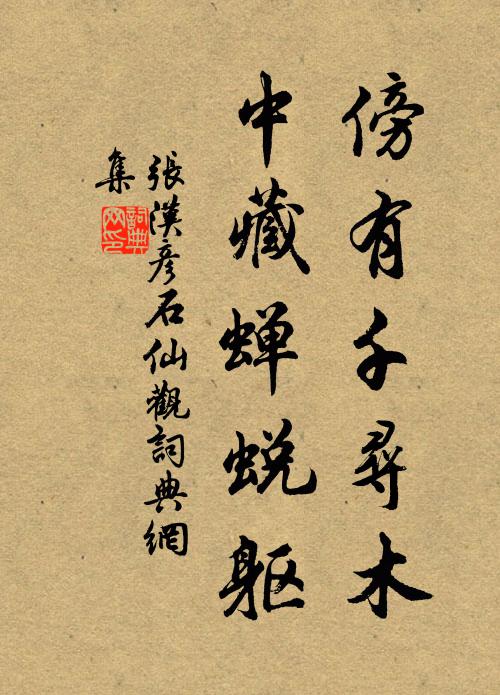 傍有千尋木
中藏蟬蛻軀
張漢彥石仙觀詞典網
集
詞典
网印